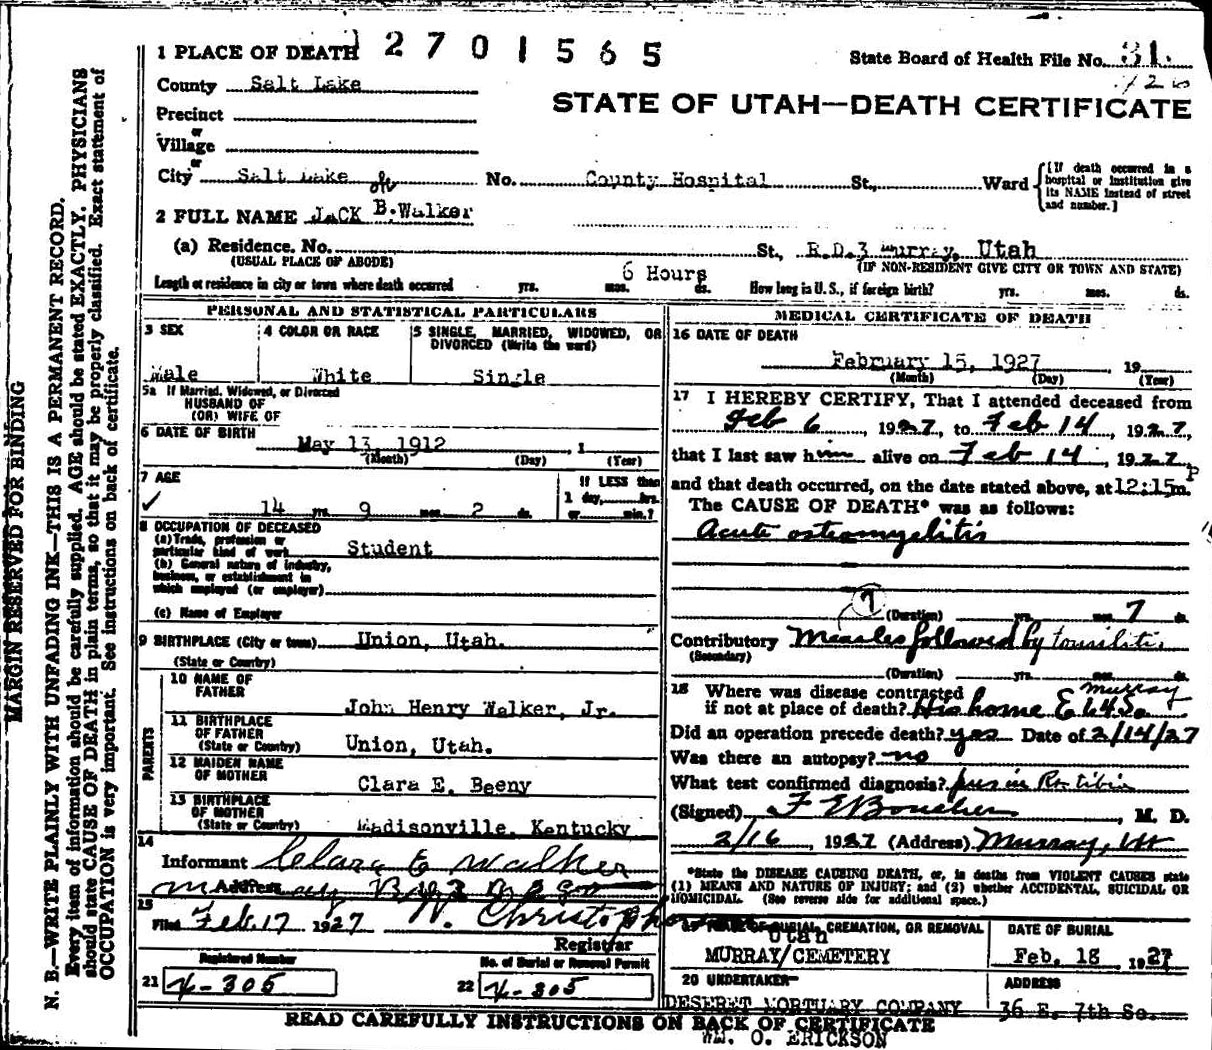 1 PLACE OF DEATH 12701565
State Board of Health File No. 31.
County Salt Lake
STATE OF UTAH—DEATH CERTIFICATE
Precinct
or
Village
or
City Salt Lake No. County Hospital St., Ward
[If death occurred in a hospital or institution give its NAME instead of street and number.]
2 FULL NAME JACK B. Walker
(a) Residence. No. St., R.D.3 Murray, Utah
(USUAL PLACE OF ABODE) (IF NON-RESIDENT GIVE CITY OR TOWN AND STATE)
Length of residence in city or town where death occurred yrs. mos. 6 Hours ds. How long in U. S., if foreign birth? yrs. mos. ds.
PERSONAL AND STATISTICAL PARTICULARS
3 SEX
Male
4 COLOR OR RACE
White
5 SINGLE, MARRIED, WIDOWED, OR DIVORCED (Write the word)
Single
5a If Married, Widowed, or Divorced
HUSBAND OF
(OR) WIFE OF
6 DATE OF BIRTH
May 13, 1912, 1
(Month) (Day) (Year)
7 AGE
14 yrs. 9 mos. 2 ds.
If LESS than
1 day, hrs.
or min.?
8 OCCUPATION OF DECEASED
(a) Trade, profession or
particular kind of work Student
(b) General nature of industry,
business, or establishment in
which employed (or employer)
(c) Name of Employer
9 BIRTHPLACE (City or town) Union, Utah.
(State or Country)
PARENTS
10 NAME OF
FATHER John Henry Walker, Jr.
11 BIRTHPLACE
OF FATHER
(State or Country) Union, Utah.
12 MAIDEN NAME
OF MOTHER Clara E. Beeny
13 BIRTHPLACE
OF MOTHER
(State or Country) Madisonville, Kentucky
14
Informant Clara E Walker
Address Murray
15
Filed Feb. 17 1927 Registrar
Registered Number
21
No. of Burial or Removal Permit
22
MEDICAL CERTIFICATE OF DEATH
16 DATE OF DEATH
February 15, 1927 19
(Month) (Day) (Year)
17 I HEREBY CERTIFY, That I attended deceased from
Feb 6, 1927, to Feb 14, 1927,
that I last saw him alive on Feb 14, 1927,
and that death occurred, on the date stated above, at 12:15 P m.
The CAUSE OF DEATH* was as follows:
Acute osteomyelitis
(Duration) yrs. mos. 7 ds.
Contributory Measles followed by tonsilitis
(Secondary)
(Duration) yrs. mos. ds.
18 Where was disease contracted
if not at place of death? His home E 64 So Murray
Did an operation precede death? yes Date of 2/14/27
Was there an autopsy? no
What test confirmed diagnosis? pus in Rt. tibia
(Signed) F E Boucher, M. D.
2/16 1927 (Address) Murray, Ut
*State the DISEASE CAUSING DEATH, or, in deaths from VIOLENT CAUSES state
(1) MEANS AND NATURE OF INJURY; and (2) whether ACCIDENTAL, SUICIDAL OR
HOMICIDAL. (See reverse side for additional space.)
19 PLACE OF BURIAL, CREMATION, OR REMOVAL
Utah
MURRAY CEMETERY
DATE OF BURIAL
Feb. 18 1927
20 UNDERTAKER
DESERET MORTUARY COMPANY
ADDRESS
36 E. 7th So.
READ CAREFULLY INSTRUCTIONS ON BACK OF CERTIFICATE
WM. O. ERICKSON
MARGIN RESERVED FOR BINDING
N. B.—WRITE PLAINLY WITH UNFADING INK—THIS IS A PERMANENT RECORD.
Every item of information should be carefully supplied. AGE should be stated EXACTLY. PHYSICIANS
should state CAUSE OF DEATH in plain terms, so that it may be properly classified. Exact statement of
OCCUPATION is very important. See instructions on back of certificate.